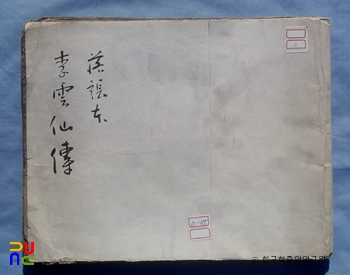 落張本
李雲仙傳
© 한국학중앙연구원